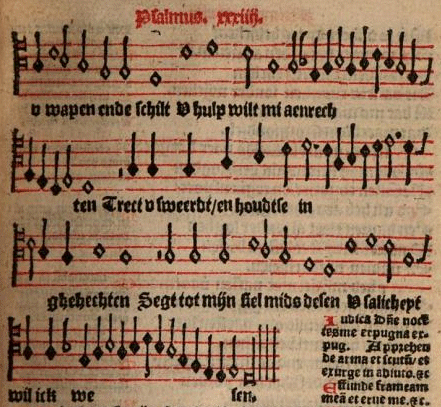 Psalmus. xxxiiij.
v wapen ende schilt V hulp wilt mi aenrech
ten Trect v sweerdt/en houdtse in
ghehechten Segt tot mijn siel mids desen V salicheyt
wil ick we sen.
Iudica Dñe nocẽ
tesme expugna ex-
pug. Apprehen
de arma et scutũ/ et
exurge in adiuto. &c.
Effunde frameam
meã et erue me. &c.